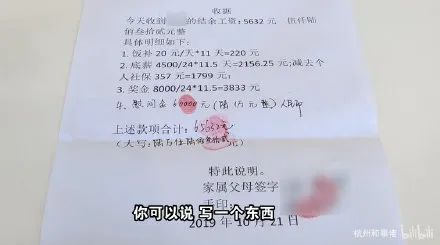 收据
今天收到 的结余工资:5632 元 伍仟陆
佰叁拾贰元整
具体明细如下:
1. 饭补 20 元/天*11 天=220 元
2. 底薪 4500/24*11.5 天=2156.25 元;减去个
人社保 357 元=1799 元;
3. 奖金 8000/24*11.5=3833 元
4. 慰问金 60000元(陆万元整)人民币
上述款项合计:65632元
(大写:陆万伍仟陆佰叁拾贰元)
特此说明。
家属父母签字
手印:
2019 年 10 月 21 日
你可以说 写一个东西
杭州和事佬 bilibili